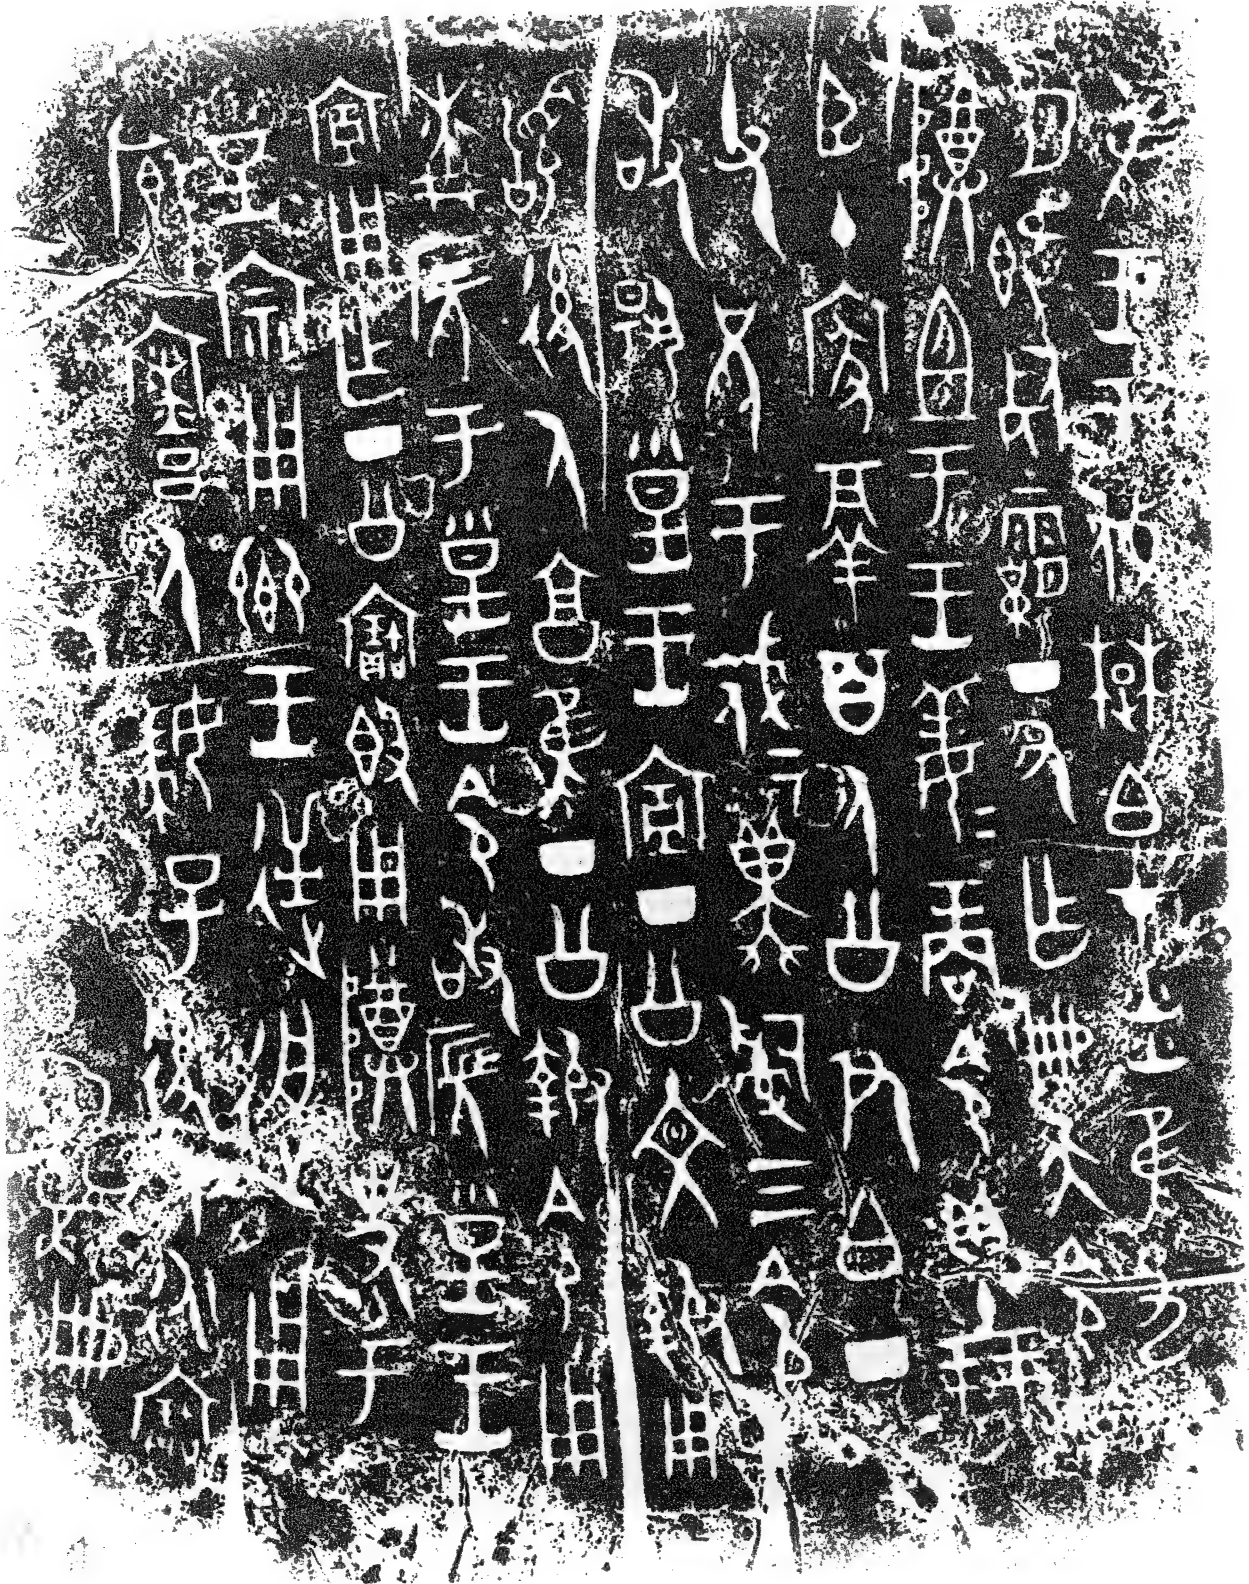 隹王于伐楚白才炎隹九
月既死霸丁丑乍冊夨令
尊宜于王姜=商令貝十朋
臣十家鬲百人公尹白丁
父兄于戍=冀嗣三令
敢揚皇王宦丁公文報用
稽後人享隹丁公報令用
展于皇王令敢展皇王
宦用乍丁公寶簋用尊史于
皇宗用鄉王逆用
寮人婦子後人永寶
冊